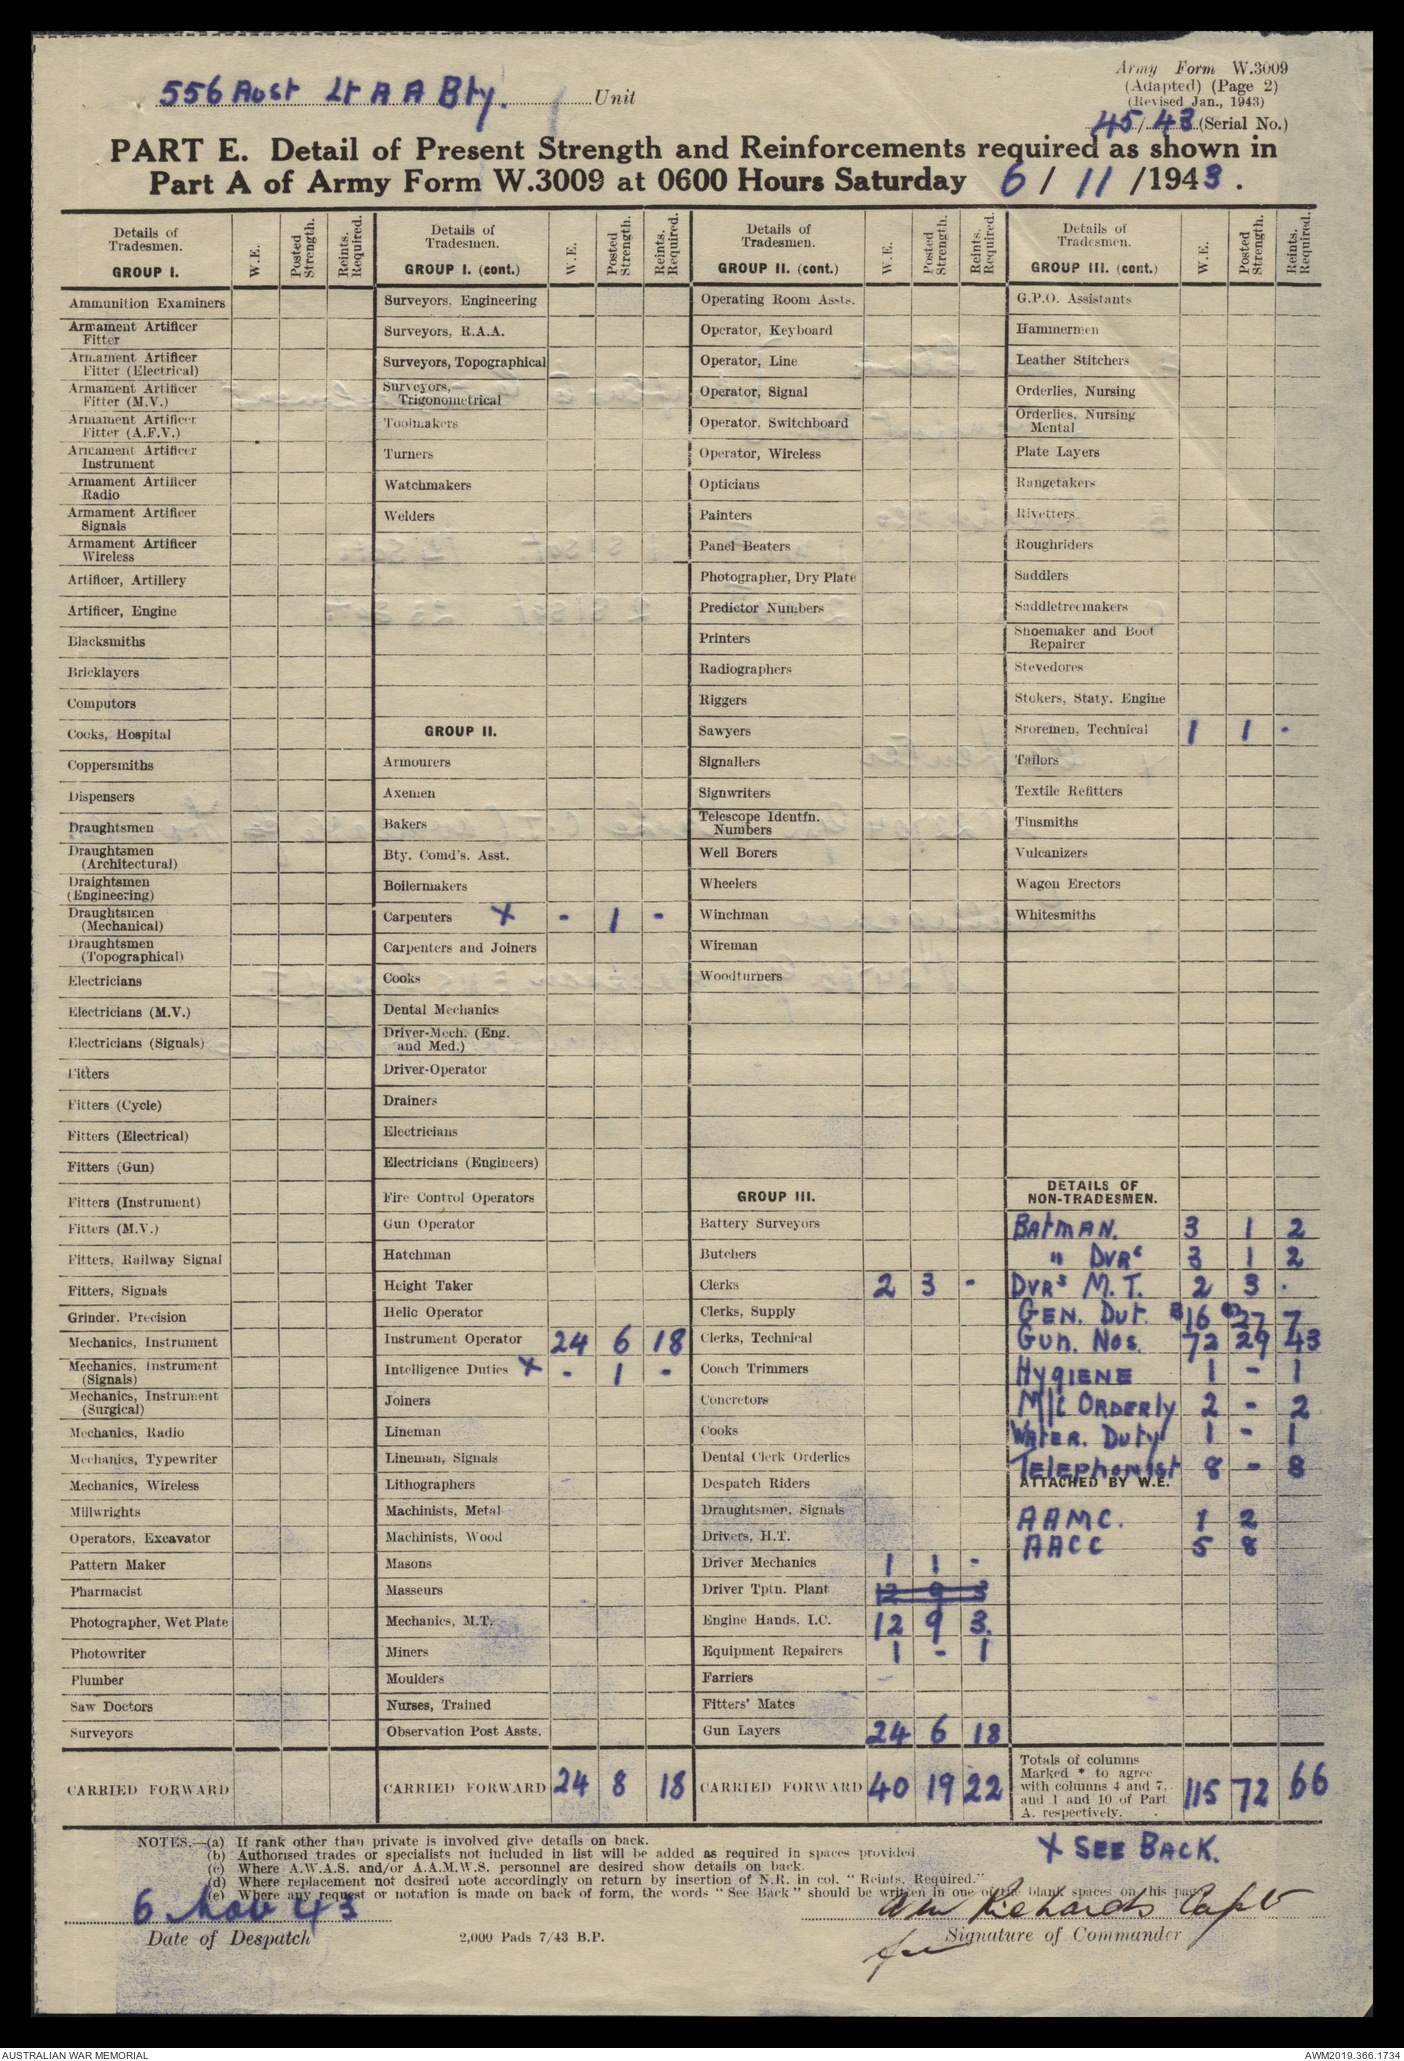 556 Aust Lt A A Bty. Unit
Army Form W.3009
(Adapted) (Page 2)
(Revised Jan., 1943)
45/43 (Serial No.)
PART E. Detail of Present Strength and Reinforcements required as shown in
Part A of Army Form W.3009 at 0600 Hours Saturday 6 / 11 /1943.
Details of Tradesmen. GROUP I. W.E. Posted Strength. Reints. Required.
Ammunition Examiners
Armament Artificer
Fitter
Armament Artificer
Fitter (Electrical)
Armament Artificer
Fitter (M.V.)
Armament Artificer
Fitter (A.F.V.)
Armament Artificer
Instrument
Armament Artificer
Radio
Armament Artificer
Signals
Armament Artificer
Wireless
Artificer, Artillery
Artificer, Engine
Blacksmiths
Bricklayers
Computors
Cooks, Hospital
Coppersmiths
Dispensers
Draughtsmen
Draughtsmen
(Architectural)
Draightsmen
(Engineering)
Draughtsmen
(Mechanical)
Draughtsmen
(Topographical)
Electricians
Electricians (M.V.)
Electricians (Signals)
Fitters
Fitters (Cycle)
Fitters (Electrical)
Fitters (Gun)
Fitters (Instrument)
Fitters (M.V.)
Fitters, Railway Signal
Fitters, Signals
Grinder, Precision
Mechanics, Instrument
Mechanics, Instrument
(Signals)
Mechanics, Instrument
(Surgical)
Mechanics, Radio
Mechanics, Typewriter
Mechanics, Wireless
Millwrights
Operators, Excavator
Pattern Maker
Pharmacist
Photographer, Wet Plate
Photowriter
Plumber
Saw Doctors
Surveyors
CARRIED FORWARD
Details of Tradesmen. GROUP I. (cont.) W.E. Posted Strength. Reints. Required.
Surveyors, Engineering
Surveyors, R.A.A.
Surveyors, Topographical
Surveyors,
Trigonometrical
Toolmakers
Turners
Watchmakers
Welders
GROUP II.
Armourers
Axemen
Bakers
Bty. Comd's. Asst.
Boilermakers
Carpenters X - 1 -
Carpenters and Joiners
Cooks
Dental Mechanics
Driver-Mech. (Eng.
and Med.)
Driver-Operator
Drainers
Electricians
Electricians (Engineers)
Fire Control Operators
Gun Operator
Hatchman
Height Taker
Helio Operator
Instrument Operator 24 6 18
Intelligence Duties X - 1 -
Joiners
Lineman
Lineman, Signals
Lithographers
Machinists, Metal
Machinists, Wood
Masons
Masseurs
Mechanics, M.T.
Miners
Moulders
Nurses, Trained
Observation Post Assts.
CARRIED FORWARD 24 8 18
Details of Tradesmen. GROUP II. (cont) W.E. Posted Strength. Reints. Required.
Operating Room Assts.
Operator, Keyboard
Operator, Line
Operator, Signal
Operator, Switchboard
Operator, Wireless
Opticians
Painters
Panel Beaters
Photographer, Dry Plate
Predictor Numbers
Printers
Radiographers
Riggers
Sawyers
Signallers
Signwriters
Telescope Identfn.
Numbers
Well Borers
Wheelers
Winchman
Wireman
Woodturners
GROUP III.
Battery Surveyors
Butchers
Clerks 2 3 -
Clerks, Supply
Clerks, Technical
Coach Trimmers
Concretors
Cooks
Dental Clerk Orderlies
Despatch Riders
Draughtsmen, Signals
Drivers, H.T.
Driver Mechanics 1 1 -
Driver Tptn. Plant 12 9 3
Engine Hands, I.C. 12 9 3.
Equipment Repairers 1 - 1
Farriers
Fitters' Mates
Gun Layers 24 6 18
CARRIED FORWARD 40 19 22
Details of Tradesmen. GROUP III. (cont.) W.E. Posted Strength. Reints. Required.
G.P.O. Assistants
Hammermen
Leather Stitchers
Orderlies, Nursing
Orderlies, Nursing
Mental
Plate Layers
Rangetakers
Rivetters
Roughriders
Saddlers
Saddletreemakers
Shoemaker and Boot
Repairer
Stevedores
Stokers, Staty. Engine
Sroremen, Technical 1 1 -
Tailors
Textile Refitters
Tinsmiths
Vulcanizers
Wagon Erectors
Whitesmiths
DETAILS OF
NON-TRADESMEN.
BATMAN. 3 1 2
" DVRS 3 1 2
DVRS M.T. 2 3 .
GEN. DUT. 16 27 7
GUN. NOS. 72 29 43
HYGIENE 1 - 1
M/C ORDERLY 2 - 2
WATER. DUTY 1 - 1
TELEPHONIST 8 - 8
ATTACHED BY W.E.
AAMC. 1 2
AACC 5 8
Totals of columns
Marked * to agree
with columns 4 and 7,
and 1 and 10 of Part
A. respectively. 115 72 66
NOTES.—(a) If rank other than private is involved give details on back.
(b) Authorised trades or specialists not included in list will be added as required in spaces provided
(c) Where A.W.A.S. and/or A.A.M.W.S. personnel are desired show details on back.
(d) Where replacement not desired note accordingly on return by insertion of N.R. in col. "Reints. Required."
(e) Where any request or notation is made on back of form, the words "See Back" should be written in one of the blank spaces on this page
X SEE BACK.
6 Nov 43
Date of Despatch
2,000 Pads 7/43 B.P.
Richards Capt
for
Signature of Commander
AUSTRALIAN WAR MEMORIAL
AWM2019.366.1734